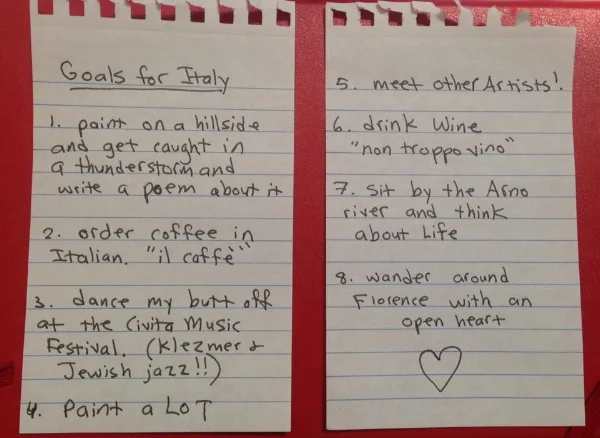 Goals for Italy
1. paint on a hillside
and get caught in
a thunderstorm and
write a poem about it
2. order coffee in
Italian. "il caffè"
3. dance my butt off
at the Civita Music
Festival. (Klezmer &
Jewish jazz!!)
4. Paint a LOT
5. meet other Artists!
6. drink Wine
"non troppo vino"
7. Sit by the Arno
river and think
about Life
8. wander around
Florence with an
open heart